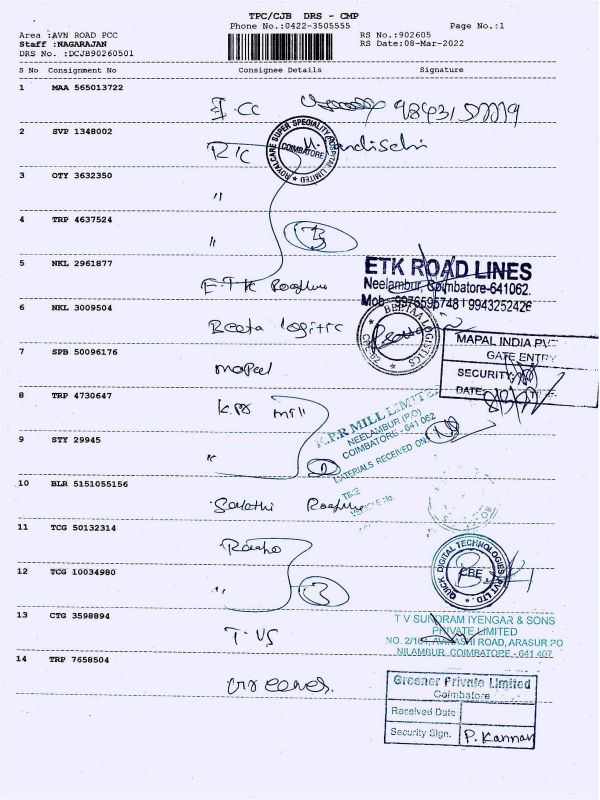 TPC/CJB DRS - CMP
Phone No.:0422-3505555 Page No.:1
Area :AVN ROAD PCC RS No.:902605
Staff :NAGARAJAN RS Date:08-Mar-2022
DRS No. :DCJB90260501
S No Consignment No Consignee Details Signature
1 MAA 565013722
2 SVP 1348002
ROYALCARE SUPER SPECIALITY HOSPITAL LIMITED
COIMBATORE
3 OTY 3632350
"
4 TRP 4637524
" 3
5 NKL 2961877
E.T.K
ETK ROAD LINES
Neelambur, Coimbatore-641062.
Mob: 9976595748 | 9943252426
6 NKL 3009504
Beeta
BEETAA LOGISTICS
7 SPB 50096176
Mapal
MAPAL INDIA PVT
GATE ENTRY
SECURITY
DATE: 8/3/22 TIME:
8 TRP 4730647
K.PR Mill
K.P.R MILL LIMITED
NEELAMBUR (P.O)
COIMBATORE - 641 062
MATERIALS RECEIVED ON
TIME
VEHICLE No.
9 STY 29945
" 2
10 BLR 5151055156
11 TCG 50132314
QUICK DIGITAL TECHNOLOGIES PVT LTD.
CBE
12 TCG 10034980
"
13 CTG 3598894
T. VS
T V SUNDRAM IYENGAR & SONS
PRIVATE LIMITED
ROAD, ARASUR PO
NILAMBUR COIMBATORE - 641 407
14 TRP 7658504
Greener Private Limited
Coimbatore
Received Date
Security Sign. P. Kannan